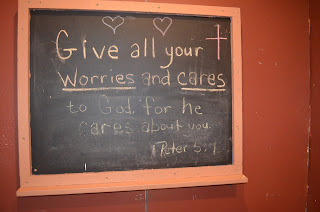 Give all your
Worries and cares
to God, for he
cares about you.
1 Peter 5:7